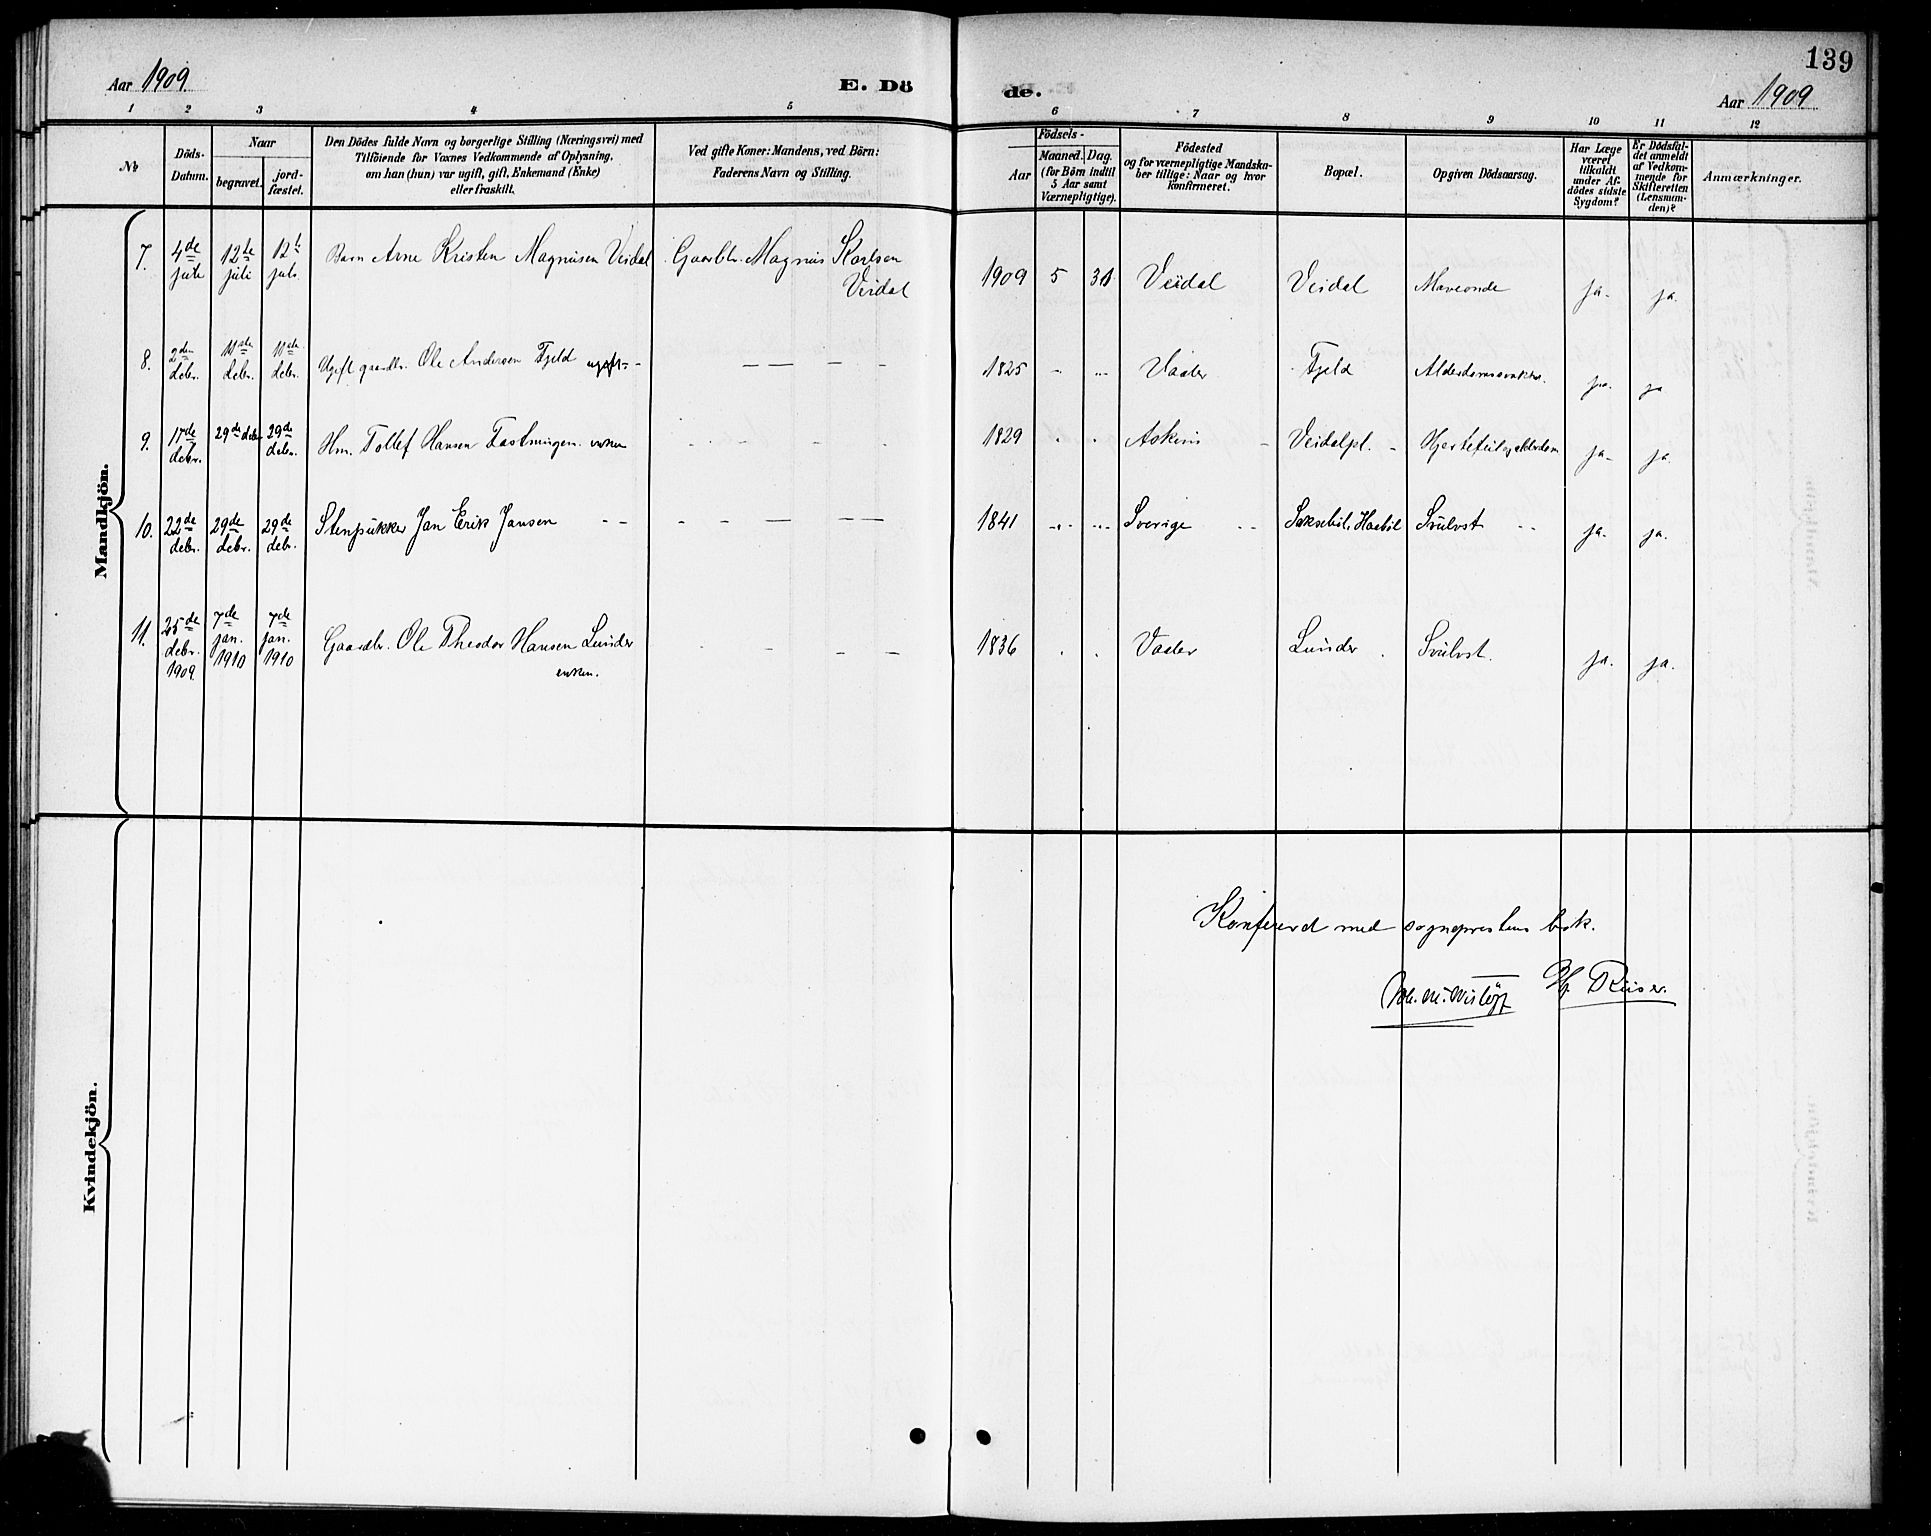 139
Aar 1909.
E. Dö
de.
Aar 1909
1 2 3 4 5 6 7 8 9 10 11 12
No
Döds-
Datum.
Naar
begravet.
jord-
fæstet.
Den Dödes fulde Navn og borgerlige Stilling (Næringsvei) med
Tilföiende for Voxnes Vedkommende af Oplysning,
om han (hun) var ugift, gift, Enkemand (Enke)
eller fraskilt.
Ved gifte Koner: Mandens, ved Börn:
Faderens Navn og Stilling.
Födsels-
Aar
Maaned.
Dag.
(for Börn indtil
5 Aar samt
Værnepligtige).
Födested
og for værnepligtige Mandska-
ber tillige: Naar og hvor
konfirmeret.
Bopæl.
Opgiven Dödsaarsag.
Har Læge
været
tilkaldt
under Af-
dödes sidste
Sygdom?
Er Dödsfal-
det anmeldt
af Vedkom-
mende for
Skifteretten
(Lensman-
den)?
Anmærkninger.
Mandkjön.
7. 4de juli 12te juli 12t juli Barn Arne Kristen Magnusen Veidal Gaardbr. Magnus Karlsen
Veidal
1909 5 31 Veidal Veidal Maveonde ja. ja.
8. 2den debr. 11ste debr. 11ste debr. Ugift gaardbr. Ole Andersen Fjeld ugift - — — — -
1825 - - Vaaler Fjeld ja. ja
9. 17de debr. 29de debr 29de debr. Hm. Tollef Hansen enkem
1829 Askim Veidalpl. - Hjertefeil og alderdom ja- ja.
10. 22de debr. 29de debr. 29de debr. Stenpukker Jan Erik Jansen - - - - — — —
1841 Sverige - - Svulvst - - ja. ja.
11. 25de debr. 1909. 7de jan. 1910 7de jan. 1910 Gaardbr. Ole Theodor Hansen Lunder
enkem.
1836 Vaaler Lunder Svulvst. ja. ja.
Kvindekjön.
Konfererd med sogneprestens bok.
Riiser.